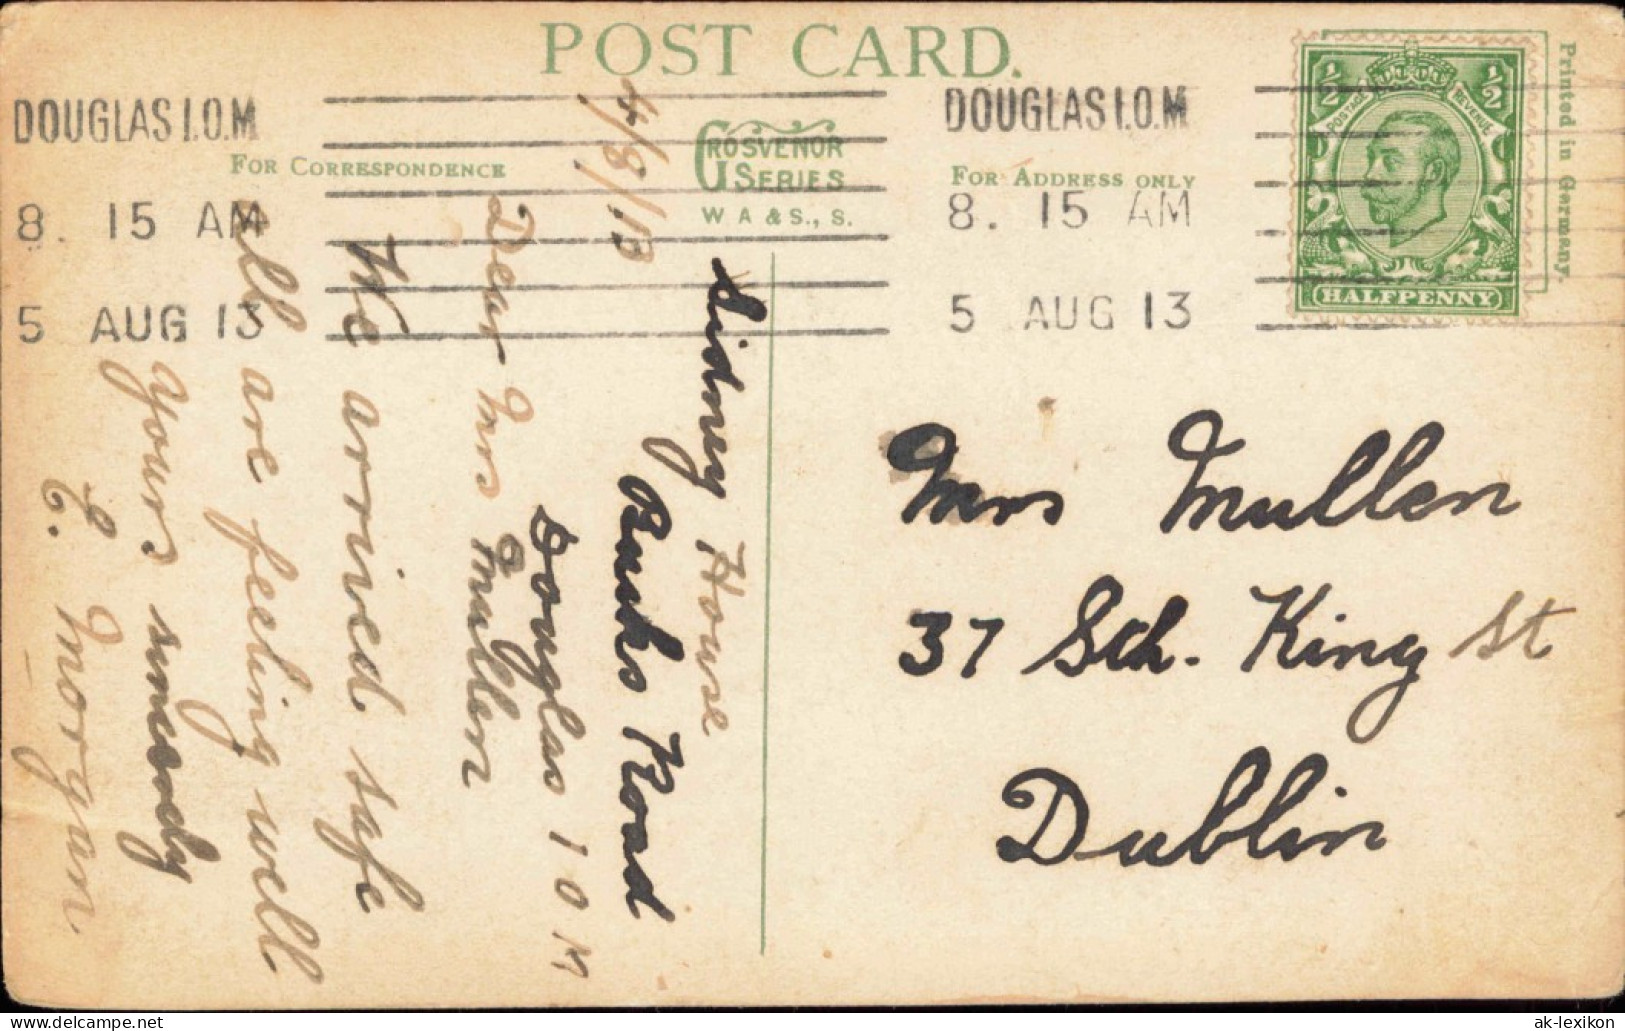 POST CARD.
DOUGLAS I.O.M
8. 15 AM
5 AUG 13
FOR CORRESPONDENCE
GROSVENOR
SERIES
W A & S., S.
DOUGLAS I.O.M
8. 15 AM
5 AUG 13
FOR ADDRESS ONLY
½ ½
POSTAGE REVENUE
HALFPENNY
Printed in Germany.
Sidney House
4/8/13
Road
Douglas I O M
Dear Mrs Mullen
We arrived safe
all are feeling well
yours
E. Morgan
Mrs Mullen
37 Sth. King St
Dublin
ak-lexikon
www.delcampe.net